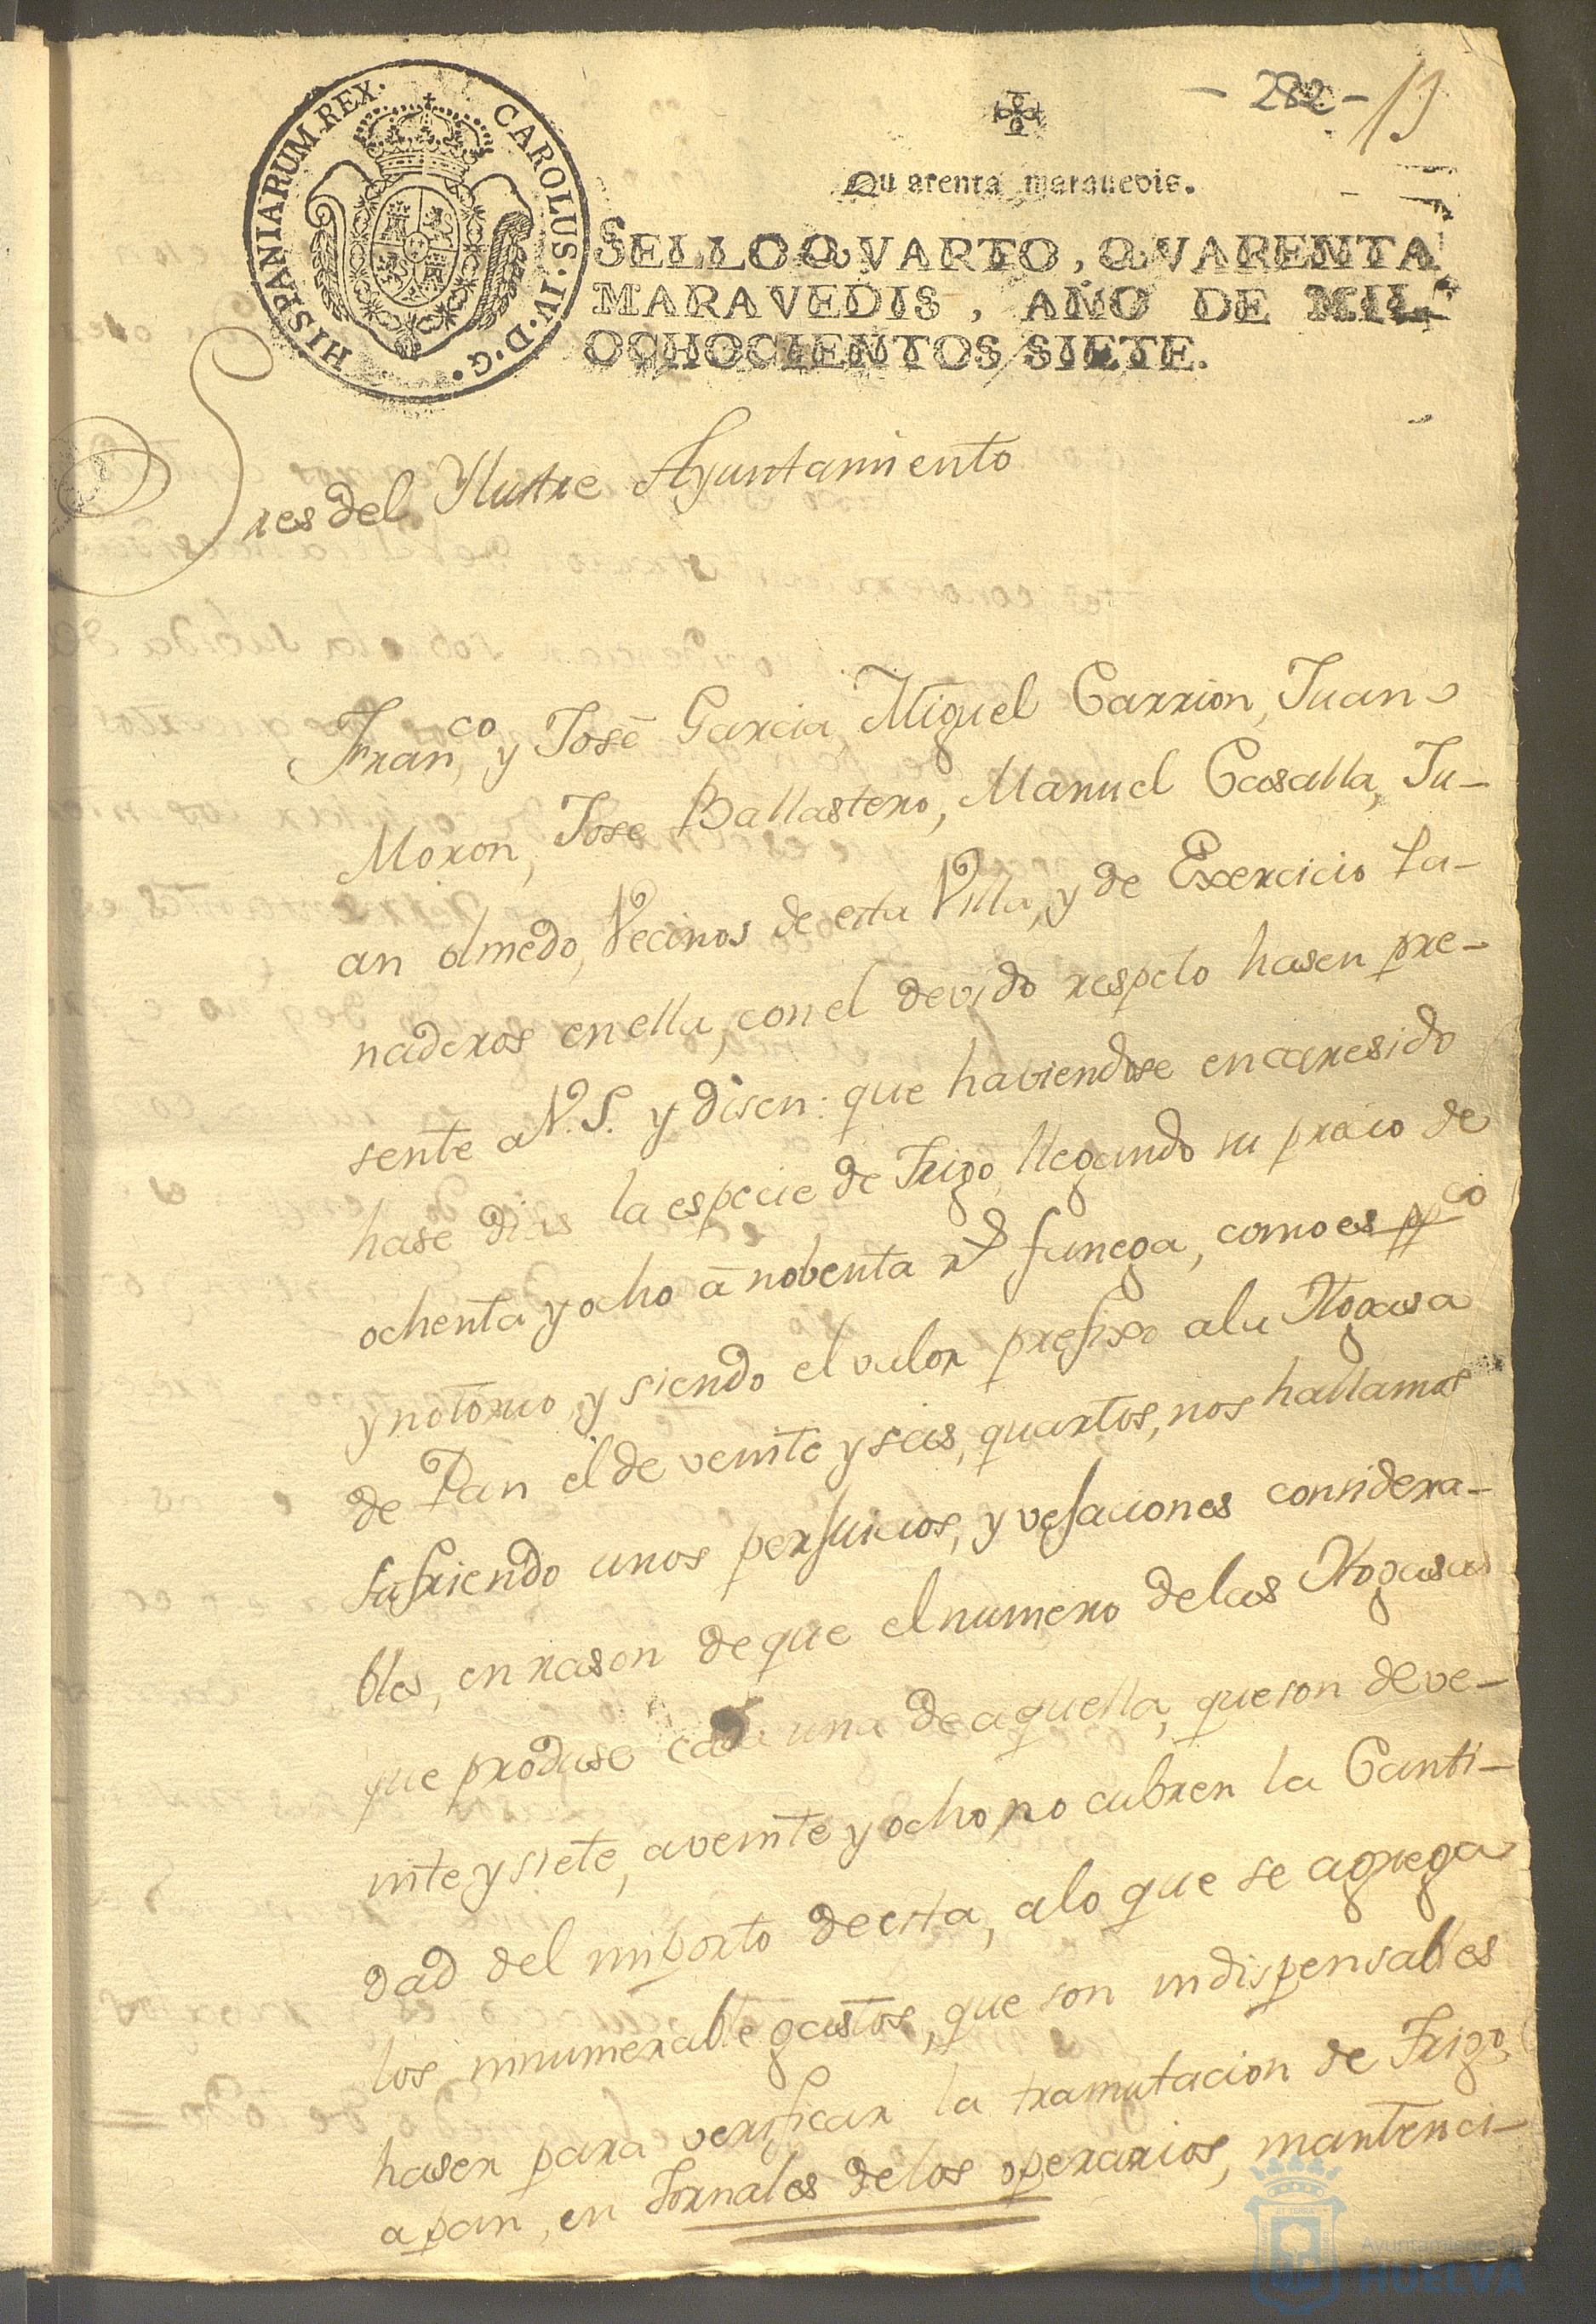 - 282 - 13
Quarenta marauedis.
HISPANIARUM REX. CAROLUS. IV. D. G.
SELLO QVARTO, QVARENTA
MARAVEDIS, AÑO DE MIL
OCHOCIENTOS SIETE.
Sres del Ylustre Ayuntamiento
Franco, y José Garcia, Miguel Carrion, Juan
Moron, Jose Ballastero, Manuel Casalla, Ju-
an olmedo, Vecinos de esta Villa, y de Exercicio Pa-
naderos en ella, con el devido respeto hasen pre-
sente a V. S. y disen: que haviendose encaresido
hase dias la especie de Trigo, llegando su precio de
ochenta y ocho á nobenta rs fanega, como es ppco
y notorio, y siendo el valor prefixo ala Hogasa
de Pan él de veinte y seis, quartos, nos hallamos
sufriendo unos perjuicios, y vejaciones considera-
bles, en rason de que el numero de las Hogasas
que produse cada una de aquella, que son de ve-
inte y siete, a veinte y ocho, no cubren la Canti-
dad del importo de esta, a lo que se agrega
los innumerable gastos, que son indispensables
haser para verificar la tramutacion de Trigo,
a pan, en Jornales de los operarios, mantenci-
Ayuntamiento de
HUELVA